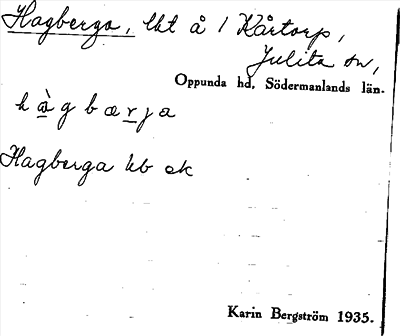 Hagberga, lht å 1 Kårtorp,
Julita sn,
Oppunda hd. Södermanlands län.
hàgbærja
Hagberga kb ek
Karin Bergström 1935.